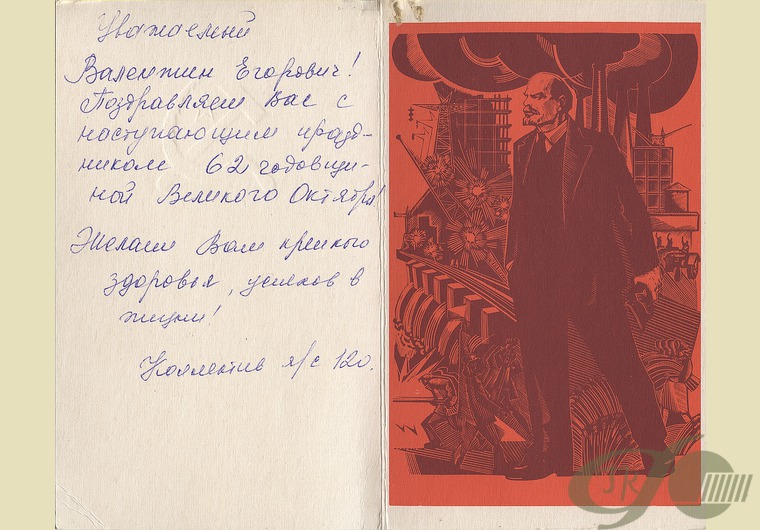 Уважаемый
Валентин Егорович!
Поздравляем Вас с
наступающим празд-
ником 62 годовщи-
ной Великого Октября!
Желаем Вам крепкого
здоровья, успехов в
жизни!
Коллектив я/с 120.
JSR